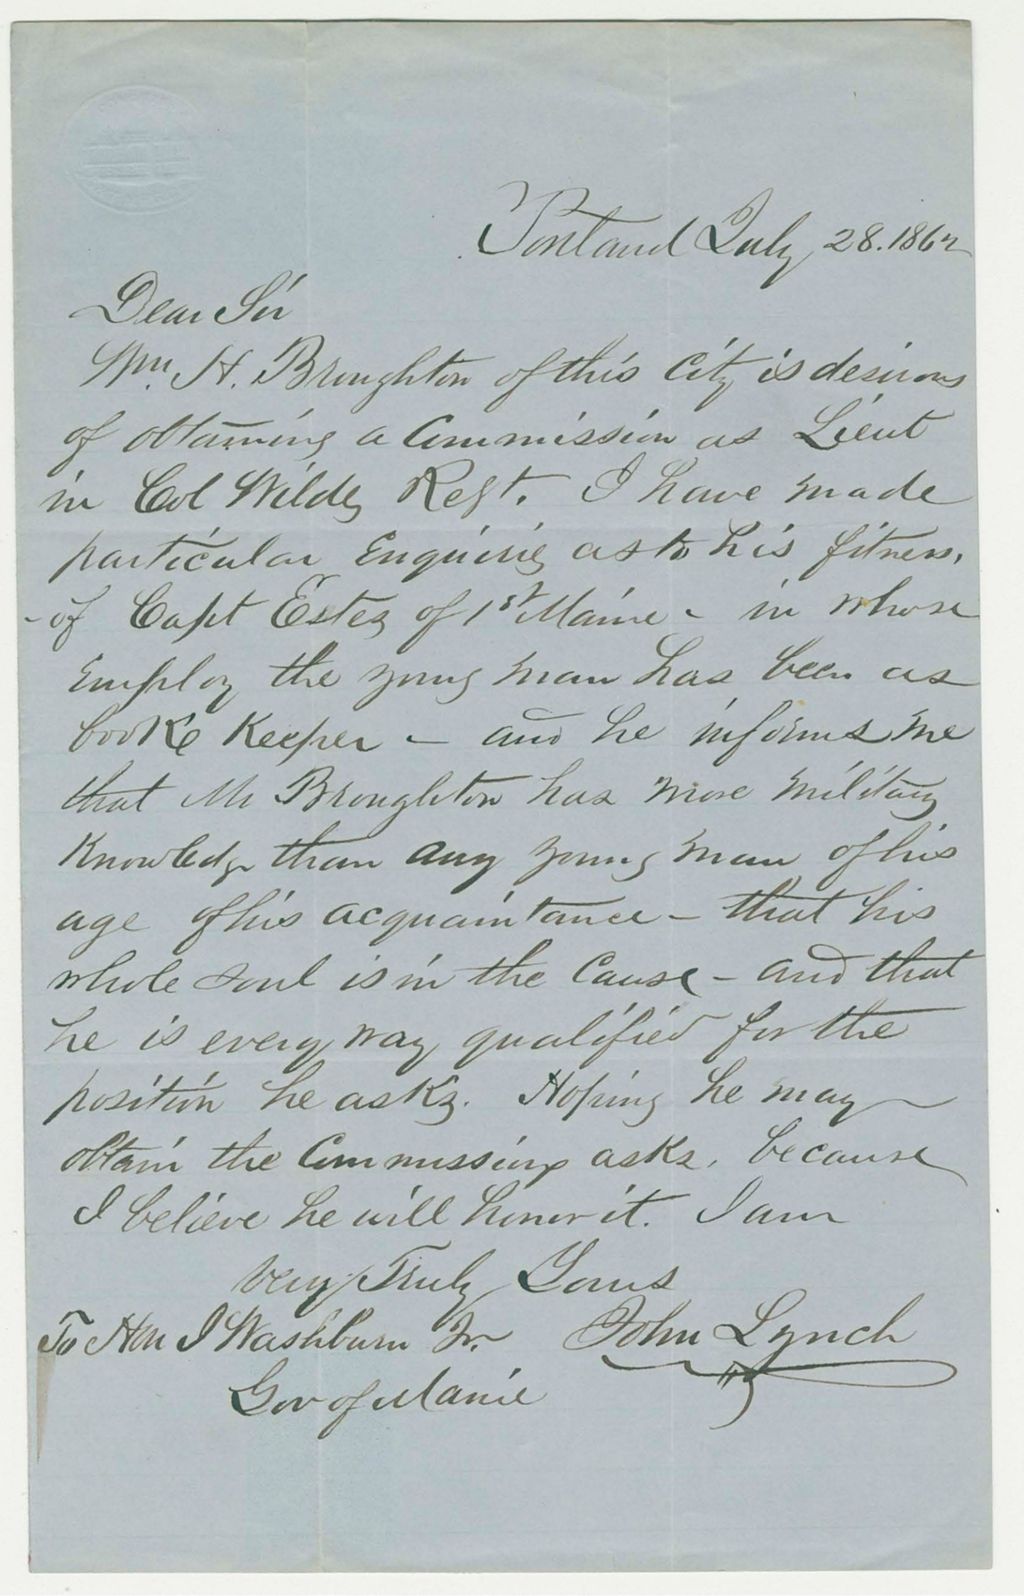 Portland July 28. 1862
Dear Sir
Wm. H. Broughton of this City is desirous
of obtaining a Commission as Lieut
in Col Wildes Regt. I have made
particular Enquirie as to his fitness,
- of Capt Estes of 1st Maine - in whose
Employ the young man has been as
booke Keeper - and he informs me
that Mr Broughton has more military
Knowledge than any young man of his
age of his acquaintance - that his
whole soul is in the Cause - and that
he is every way qualified for the
position he asks. Hoping he may
obtain the Commission asks, because
I believe he will honor it. I am
Very Truly Yours
To Hon I Washburn Jr. John Lynch
Gov of Maine